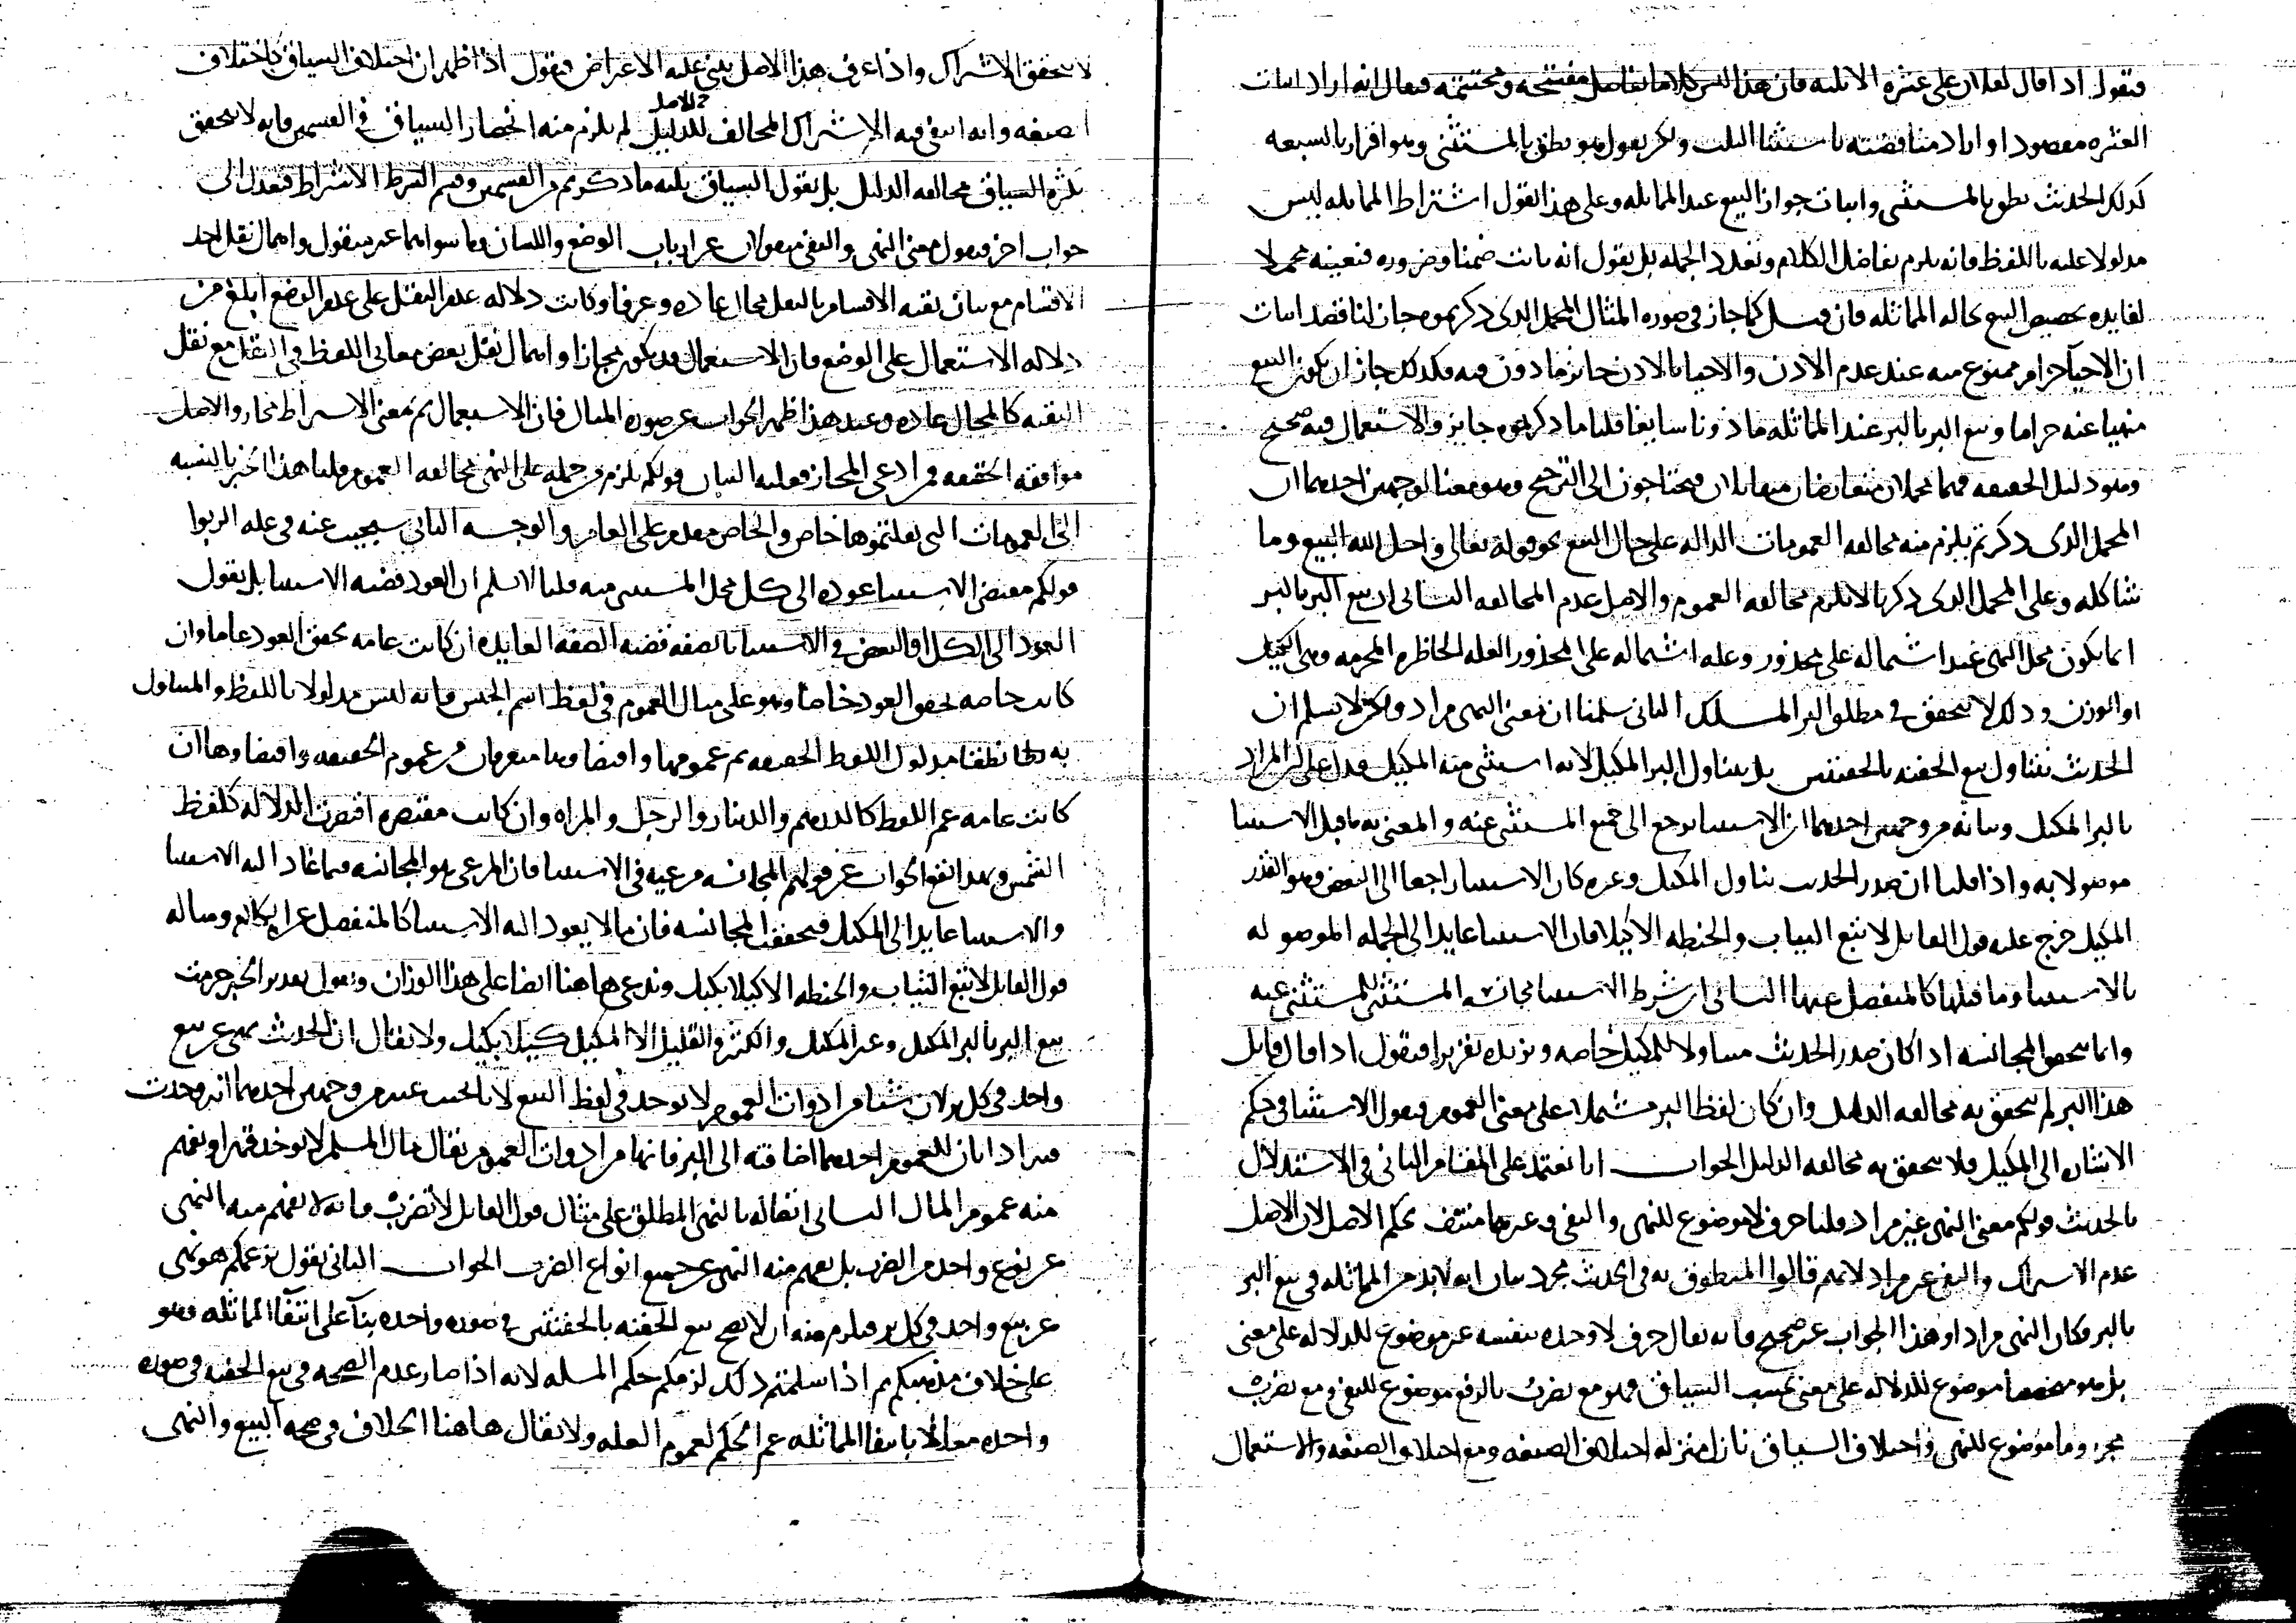 فنقول اذا قال لفلان على عشره الا ثلثه فان هذا ليس كلاما تفاصل مفتتحه ومختتمه فيقال انه اراد اثبات
العشره مقصودا واراد مناقضته باستثنا الثلث ولكن نقول هو نطق بالمستثنى وهو اقرار بالسبعه
كذلك الحديث نطق بالمستثنى واثبات جواز البيع عند المماثله وعلى هذا القول اشتراط المماثله ليس
مدلولا عليه باللفظ فانه يلزم تفاصل الكلام وتعدد الجمله بل نقول انه ثابت ضمنا وضروره فتعينه محملا
لفايده تخصيص البيع بحاله المماثله فان قيل كما جاز فى صوره المثال المحمل الذى ذكرتموه جاز لنا قصد اثبات
ان الاحيا حرام ممنوع منه عند عدم الاذن والاحيا بالاذن جايز ماذون فيه فكذلك جاز ان يكون البيع
منهيا عنه حراما وبيع البر بالبر عند المماثله ماذونا سايغا قلنا ما ذكرتموه جايز والاستعمال فيه صحيح
وهو دليل الحقيقه فهما محملان متعارضان متقابلان فيحتاجون الى الترجيح وهو معنا لوجهين احدهما ان
المحمل الذى ذكرتم يلزم منه مخالفه العمومات الداله على حال البيع نحو قوله تعالى واحل الله البيع وما
شاكله وعلى المحمل الذى ذكرنا لا تلزم مخالفه العموم والاصل عدم المخالفه الثانى ان بيع البر بالبر
انما يكون محل النهى عند اشتماله على محذور وعله اشتماله على المحذور العله الحاظره المحرمه وهى الكيل
او الوزن وذلك لا يتحقق فى مطلق البر المسلك الثانى سلمنا ان معنى النهى مراد ولكن لا نسلم ان
الحديث يتناول بيع الحفنه بالحفنتين بل يتناول البر المكيل لانه استثنى منه المكيل فدل على ان المراد
بالبر المكيل وبيانه من وجهين احدهما ان الاستثنا يرجع الى جميع المستثنى عنه والمعنى به ما قبل الاستثنا
موصولا به واذا قلنا ان صدر الحديث يتناول المكيل وغيره كان الاستثنا راجعا الى البعض وهو القدر
المكيل خرج عليه قول القايل لا تبع الثياب والحنطه الا كيلا فان الاستثنا عايد الى الجمله الموصوله
بالاستثنا وما قبلها كالمنفصل عنها الثانى ان شرط الاستثنا مجانسه المستثنى للمستثنى عنه
وانما يتحقق المجانسه اذا كان صدر الحديث متناولا للمكيل خاصه ونزيده تقريرا فنقول اذا قال قايل
هذا البر لم يتحقق به مخالفه الدليل وان كان لفظ البر مشتملا على معنى العموم فنقول الاستثنا فى حكم
الاشاره الى المكيل فلا يتحقق به مخالفه الدليل الجواب انا نعتمد على المقام الثانى فى الاستدلال
بالحديث قولكم معنى النهى غير مراد قلنا حرف لا موضوع للنهى والنفى وغيرهما منتف بحكم الاصل لان الاصل
عدم الاشتراك والنفى غير مراد لانهم قالوا المنطوق به فى الحديث مجرد بيان انه لا بد من المماثله فى بيع البر
بالبر فكان النهى مرادا وهذا الجواب غير صحيح فانه يقال حرف لا وحده بنفسه غير موضوع للدلاله على معنى
بل هو موضوع للدلاله على معنى بحسب السياق فهو مع تضرب بالرفع موضوع للنفى ومع تضرب
مجزوما موضوع للنهى واختلاف السياق نازل منزله اختلاف الصيغه ومع اختلاف الصيغه والاستعمال
لا يتحقق الاشتراك واذا عرف هذا الاصل يبنى عليه الاعتراض فنقول اذا ظهر ان اختلاف السياق كاختلاف
الصيغه وانه انتفى فيه الاشتراك المخالف للدليل للاصل لم يلزم منه انحصار السياق فى القسمين فانه لا يتحقق
بكثره السياق مخالفه الدليل بل نقول السياق ثلثه ما ذكرتم من القسمين وقسم الشرط الاشتراط فنعدل الى
جواب اخر فنقول معنى النهى والنفى منقولان عن ارباب الوضع واللسان وما سواهما غير منقول واهمال نقل احد
الاقسام مع بيان بقيه الاقسام بالنقل محال عاده وعرفا وكانت دلاله عدم النقل على عدم الوضع ابلغ من
دلاله الاستعمال على الوضع فان الاستعمال قد يكون مجازا واهمال نقل بعض معانى اللفظ فى النقل مع نقل
البقيه كالمحال عاده وعند هذا ظهر الجواب عن صوره المثال فان الاستعمال ثم بمعنى الاشتراط مجاز والاصل
موافقه الحقيقه فمن ادعى المجاز فعليه البيان قولكم يلزم من حمله على النهى مخالفه العموم قلنا هذا الخبر بالنسبه
الى العمومات التى نقلتموها خاص والخاص مقدم على العام والوجه الثانى سيجيب عنه فى عله الربوا
قولكم مقتضى الاستثنا عوده الى كل محل المستثنى منه قلنا لا نسلم ان العود قضيه الاستثنا بل نقول
العود الى الكل او البعض فى الاستثنا بالصفه قضيه الصفه العايده ان كانت عامه تحقق العود عاما وان
كانت خاصه تحقق العود خاصا وهو على مثال العموم فى لفظ اسم الجنس فانه ليس مدلولا باللفظ والمتناول
به نطقا مدلول اللفظ الحقيقه ثم عمومها واقتضاوها متعرفان من عموم الحقيقه واقتضاوها ان
كانت عامه عم اللفظ كالدرهم والدينار والرجل والمراه وان كانت مقتصره اقتصرت الدلاله كلفظ
الشمس وهذا تقع الجواب عن قولهم المجانسه مرعيه فى الاستثنا فان المرعى هو المجانسه فيما عاد اليه الاستثنا
والاستثنا عايد الى المكيل فتحققت المجانسه فان ما لا يعود اليه الاستثنا كالمنفصل عن الكلام ومثاله
قول القايل لا تبع الثياب والحنطه الا كيلا بكيل وندعى هاهنا ايضا على هذا الوزان ونقول تقدير الخبر حرمت
بيع البر بالبر المكيل وغير المكيل والكثير والقليل الا المكيل كيلا بكيل ولا يقال ان الحديث نهى عن بيع
واحد فى كل بر لان شيئا من ادوات العموم لا توجد فى لفظ البيع لانا نجيب عنه من وجهين احدهما انه وجدت
فيه اداتان للعموم احدهما اضافته الى البر فانها من ادوات العموم يقال مال المسلم لا يوخذ قهرا ويفهم
منه عموم المال الثانى اتصاله بالنهى المطلق على مثال قول القايل لا تضرب فانه لا يفهم منه النهى
عن نوع واحد من الضرب بل يفهم منه النهى عن جميع انواع الضرب الجواب الثانى نقول بزعمكم هو نهى
عن بيع واحد فى كل بر فيلزم منه ان لا يصح بيع الحفنه بالحفنتين فى صوره واحده بنآ على انتفآ المماثله وهو
على خلاف مذهبكم ثم اذا سلمتم ذلك لزمكم حكم المسله لانه اذا صار عدم الصحه فى بيع الحفنه فى صوره
واحده معللا بانتفا المماثله عم الحكم لعموم العله ولا يقال هاهنا الخلاف فى صحه البيع والنهى